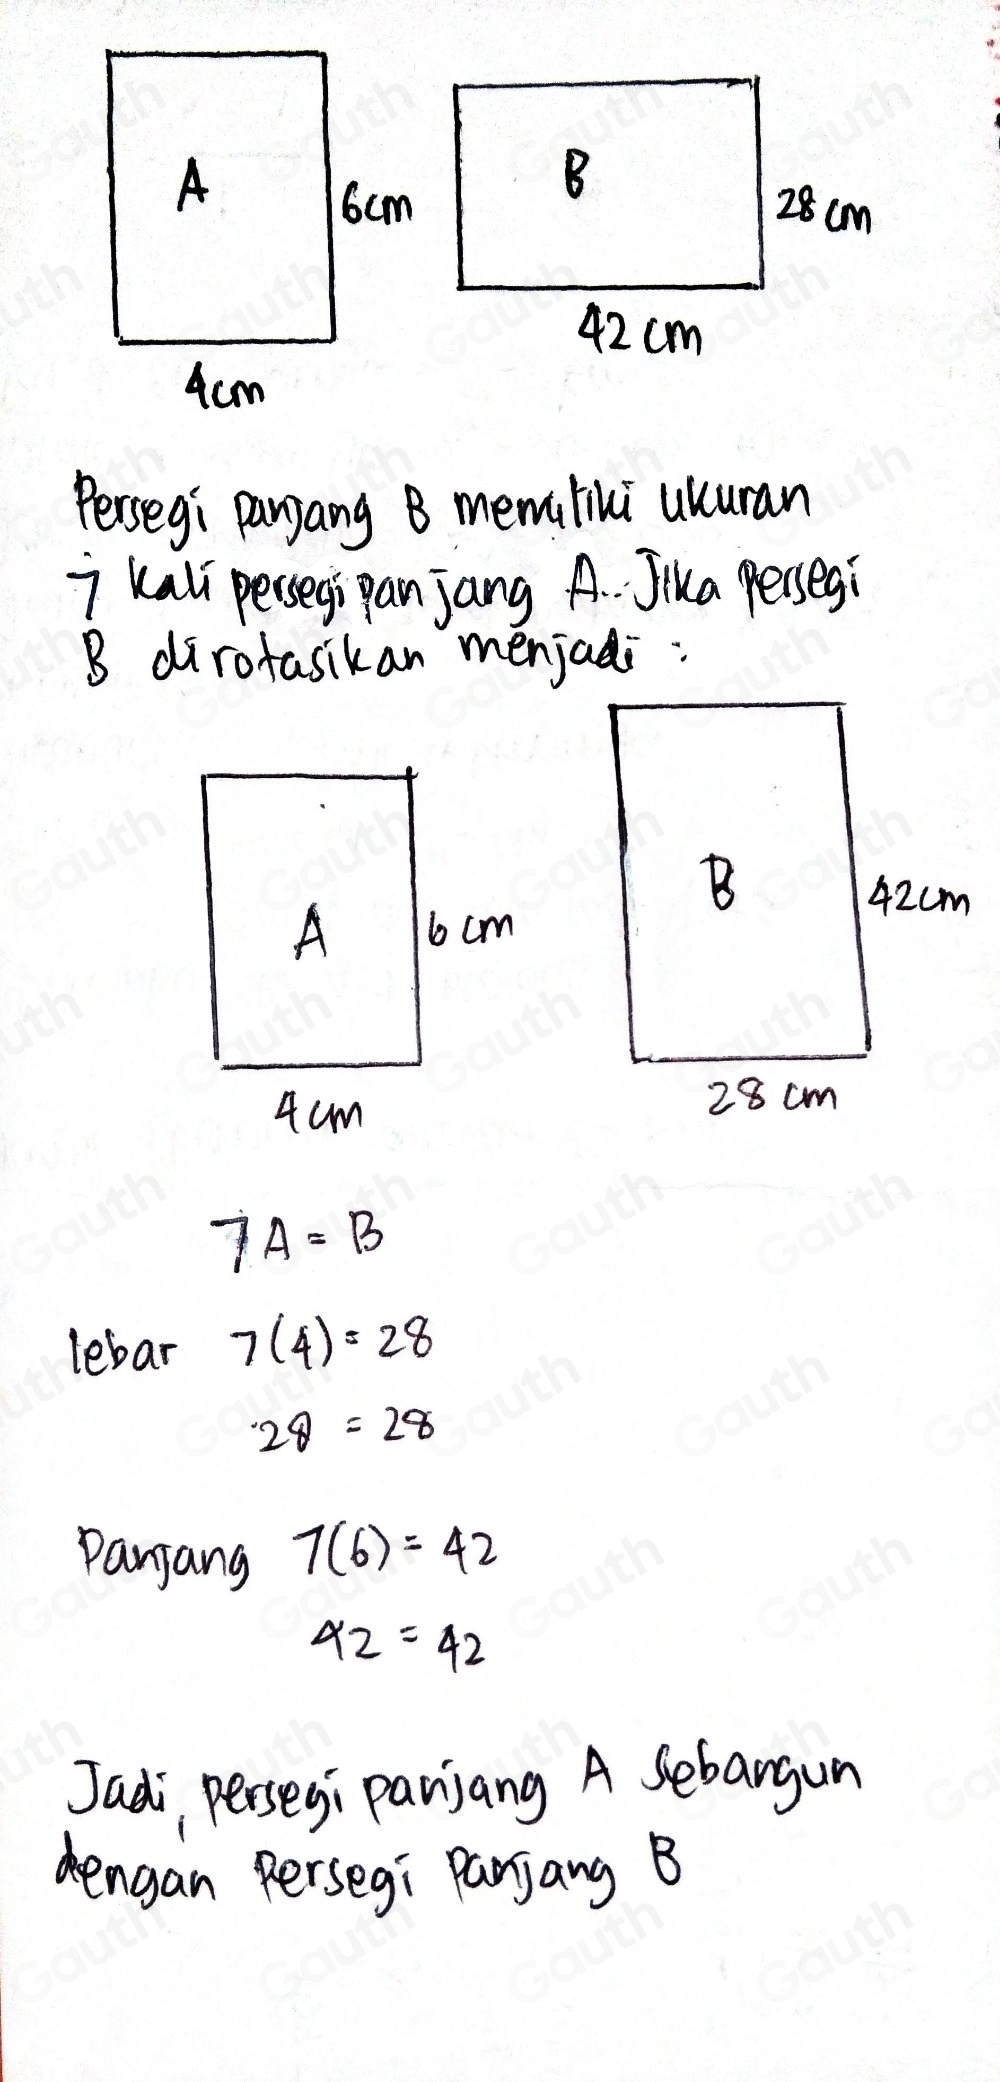 A
6cm
4cm
B
28 cm
42 cm
Persegi panjang B memiliki ukuran
7 kali persegi panjang A. Jika persegi
B dirotasikan menjadi :
A
6 cm
4 cm
B
42cm
28 cm
7A = B
lebar 7(4) = 28
28 = 28
Panjang 7(6) = 42
42 = 42
Jadi, persegi panjang A sebangun
dengan Persegi Panjang B
Gauth